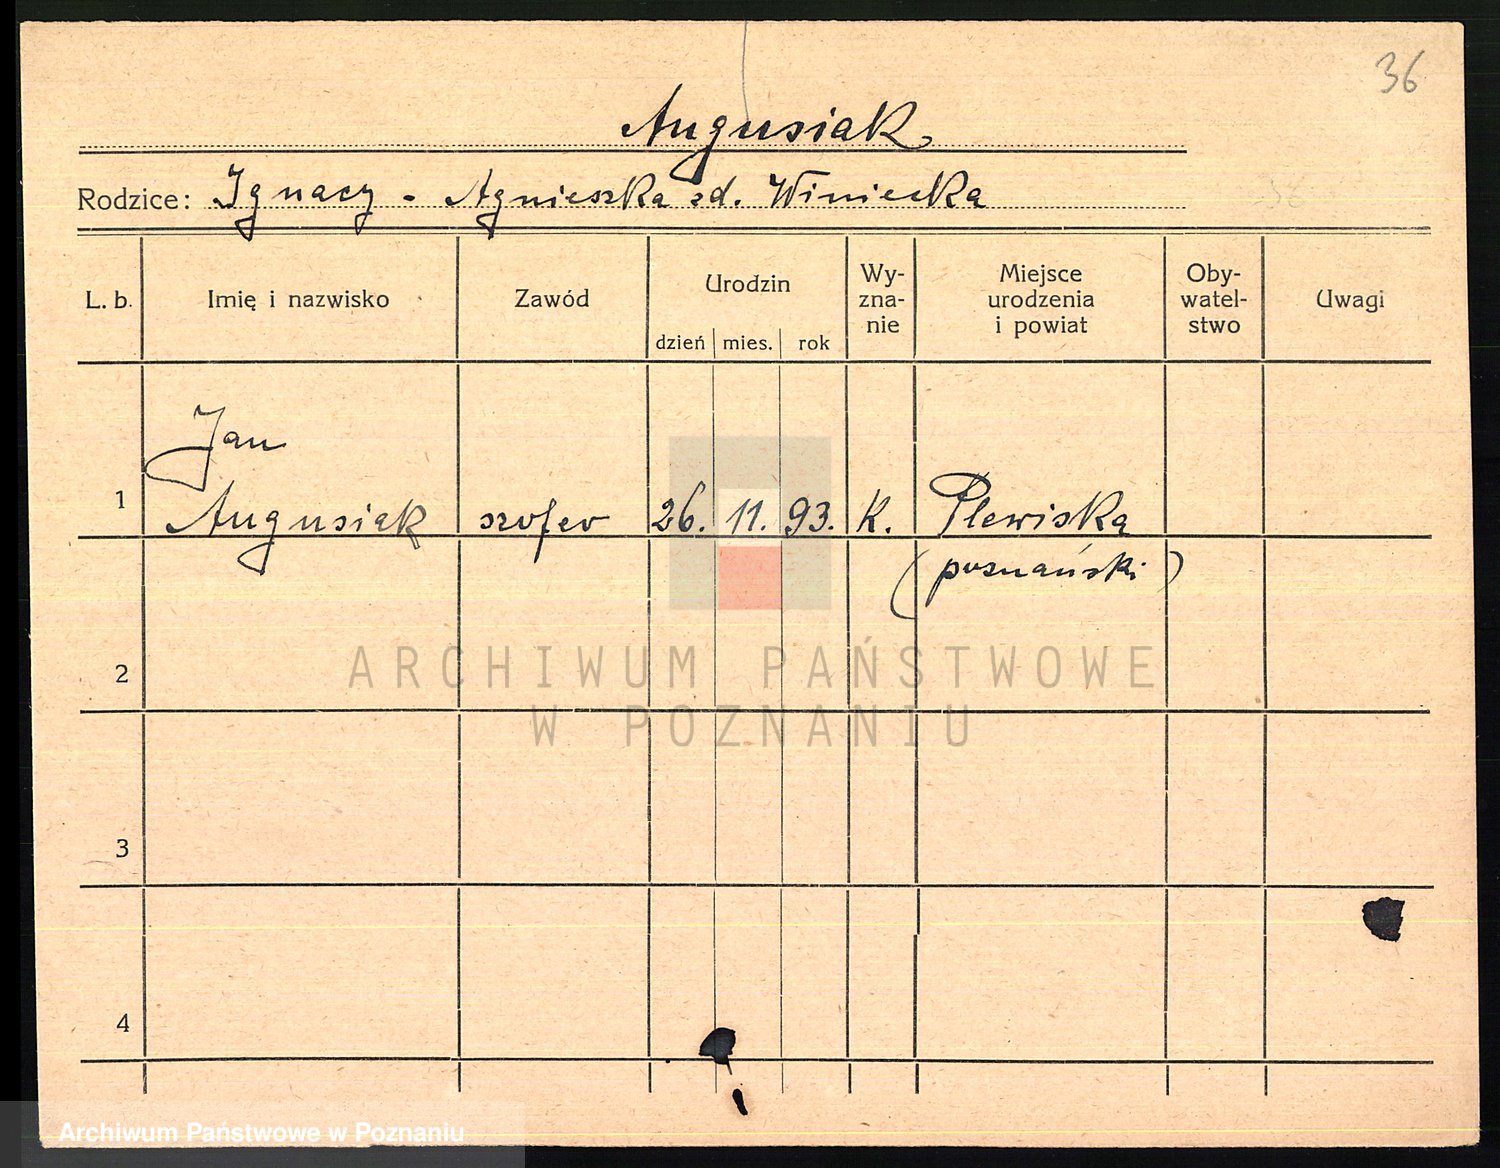 36
Augusiak
Rodzice: Ignacy - Agnieszka zd. Winiecka
L. b.
Imię i nazwisko
Zawód
Urodzin
dzień
mies.
rok
Wy-
zna-
nie
Miejsce
urodzenia
i powiat
Oby-
watel-
stwo
Uwagi
Jan
1 Augusiak szofer 26. 11. 93. K. Plewiska
(poznański)
2
ARCHIWUM PAŃSTWOWE
W POZNANIU
3
4
Archiwum Państwowe w Poznaniu